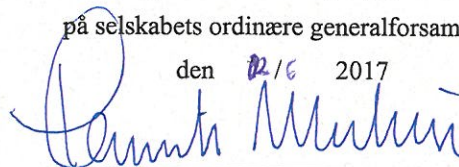 på selskabets ordinære generalforsam
den 12/6 2017